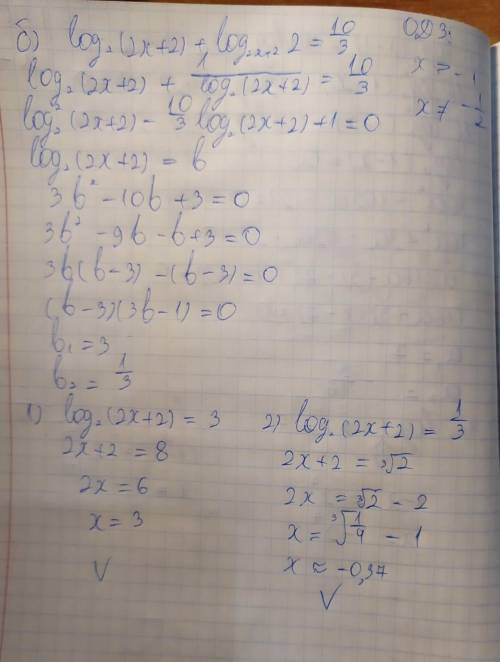 б) log₂(2x+2) + log₂ₓ₊₂ 2 = 10/3
ОДЗ:
x > -1
x ≠ -1/2
log₂(2x+2) + 1/log₂(2x+2) = 10/3
log₂²(2x+2) - 10/3 log₂(2x+2) + 1 = 0
log₂(2x+2) = b
3b² - 10b + 3 = 0
3b² - 9b - b + 3 = 0
3b(b-3) - (b-3) = 0
(b-3)(3b-1) = 0
b₁ = 3
b₂ = 1/3
1) log₂(2x+2) = 3
2x+2 = 8
2x = 6
x = 3
V
2) log₂(2x+2) = 1/3
2x+2 = ³√2
2x = ³√2 - 2
x = ³√(1/4) - 1
x ≈ -0,37
V